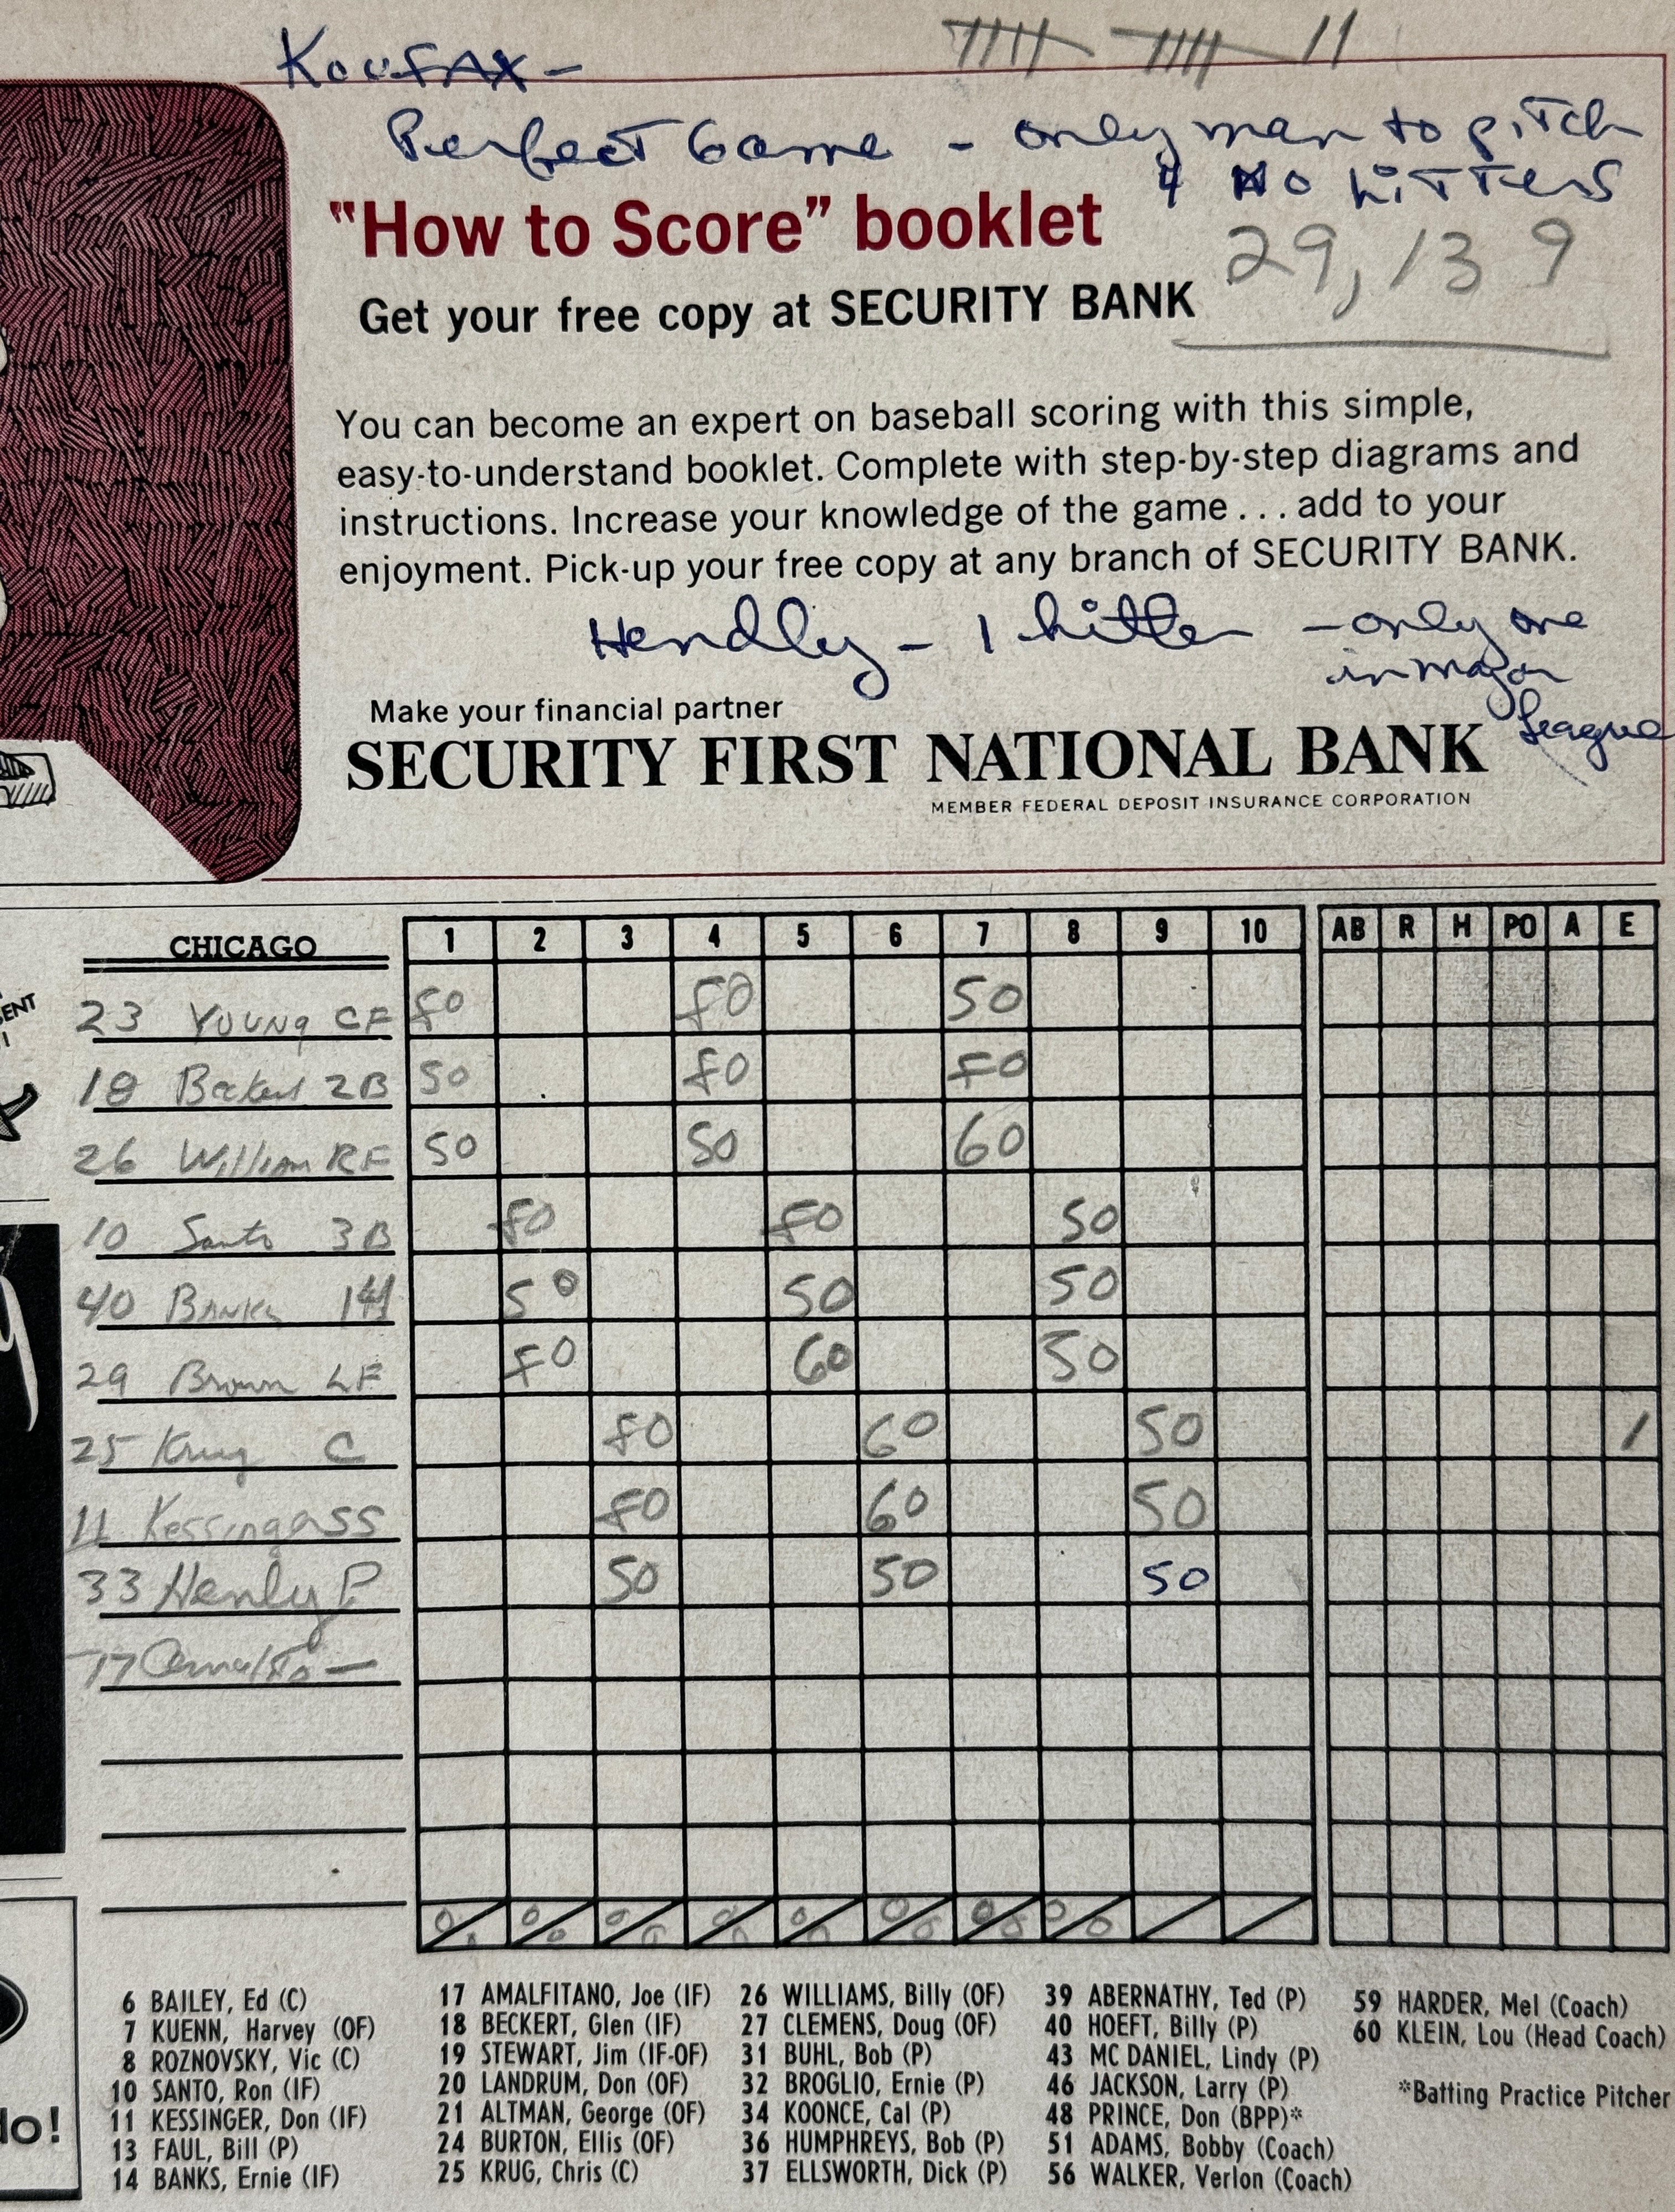 KOUFAX –
Perfect Game – only man to pitch
4 NO HITTERS
"How to Score" booklet
29,139
Get your free copy at SECURITY BANK
You can become an expert on baseball scoring with this simple,
easy-to-understand booklet. Complete with step-by-step diagrams and
instructions. Increase your knowledge of the game . . . add to your
enjoyment. Pick-up your free copy at any branch of SECURITY BANK.
Hendly – 1 hitter – only one
in major
League
Make your financial partner
SECURITY FIRST NATIONAL BANK
MEMBER FEDERAL DEPOSIT INSURANCE CORPORATION
CHICAGO 1 2 3 4 5 6 7 8 9 10 AB R H PO A E
23 Young CF FO FO SO
18 Beckert 2B SO FO FO
26 William RF SO SO 60
10 Santo 3B FO FO SO
40 Banks SO SO SO
29 Brown LF FO 60 SO
25 Krug C FO 60 SO 1
11 Kessinger SS FO 60 SO
33 Henly P SO SO SO
17
0 0 0 0 0 0 0 0 0 0 0 0 0 0 0
ENT
lo!
6 BAILEY, Ed (C)
7 KUENN, Harvey (OF)
8 ROZNOVSKY, Vic (C)
10 SANTO, Ron (IF)
11 KESSINGER, Don (IF)
13 FAUL, Bill (P)
14 BANKS, Ernie (IF)
17 AMALFITANO, Joe (IF)
18 BECKERT, Glen (IF)
19 STEWART, Jim (IF-OF)
20 LANDRUM, Don (OF)
21 ALTMAN, George (OF)
24 BURTON, Ellis (OF)
25 KRUG, Chris (C)
26 WILLIAMS, Billy (OF)
27 CLEMENS, Doug (OF)
31 BUHL, Bob (P)
32 BROGLIO, Ernie (P)
34 KOONCE, Cal (P)
36 HUMPHREYS, Bob (P)
37 ELLSWORTH, Dick (P)
39 ABERNATHY, Ted (P)
40 HOEFT, Billy (P)
43 MC DANIEL, Lindy (P)
46 JACKSON, Larry (P)
48 PRINCE, Don (BPP)*
51 ADAMS, Bobby (Coach)
56 WALKER, Verlon (Coach)
59 HARDER, Mel (Coach)
60 KLEIN, Lou (Head Coach)
*Batting Practice Pitcher